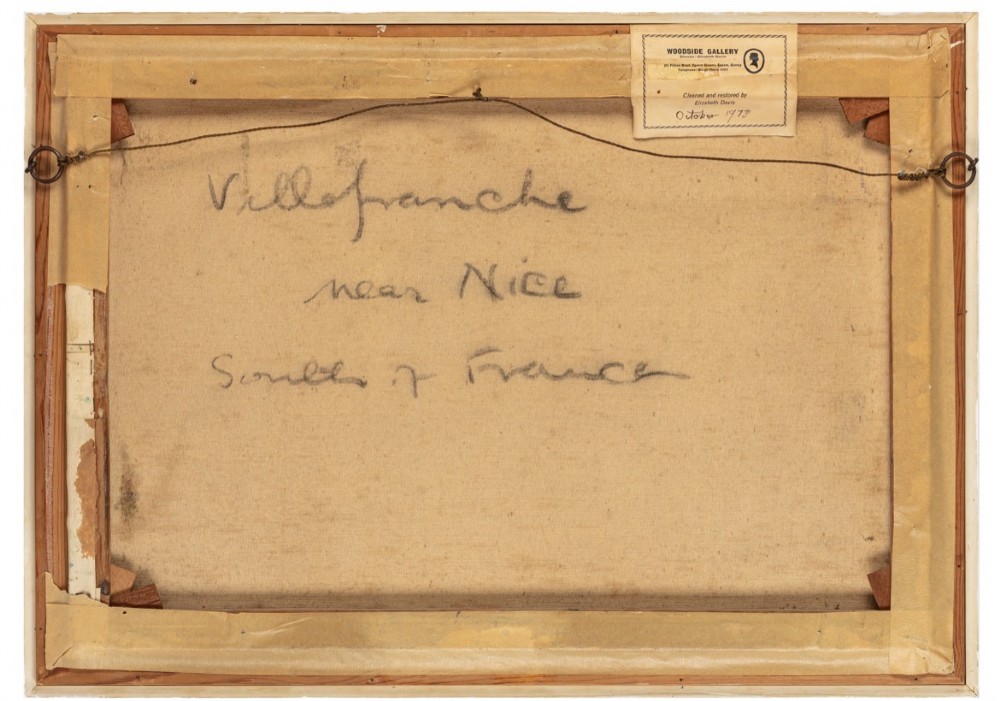 WOODSIDE GALLERY
Cleaned and restored by
Elizabeth Davis
October 1973
Villefranche
near Nice
South of France